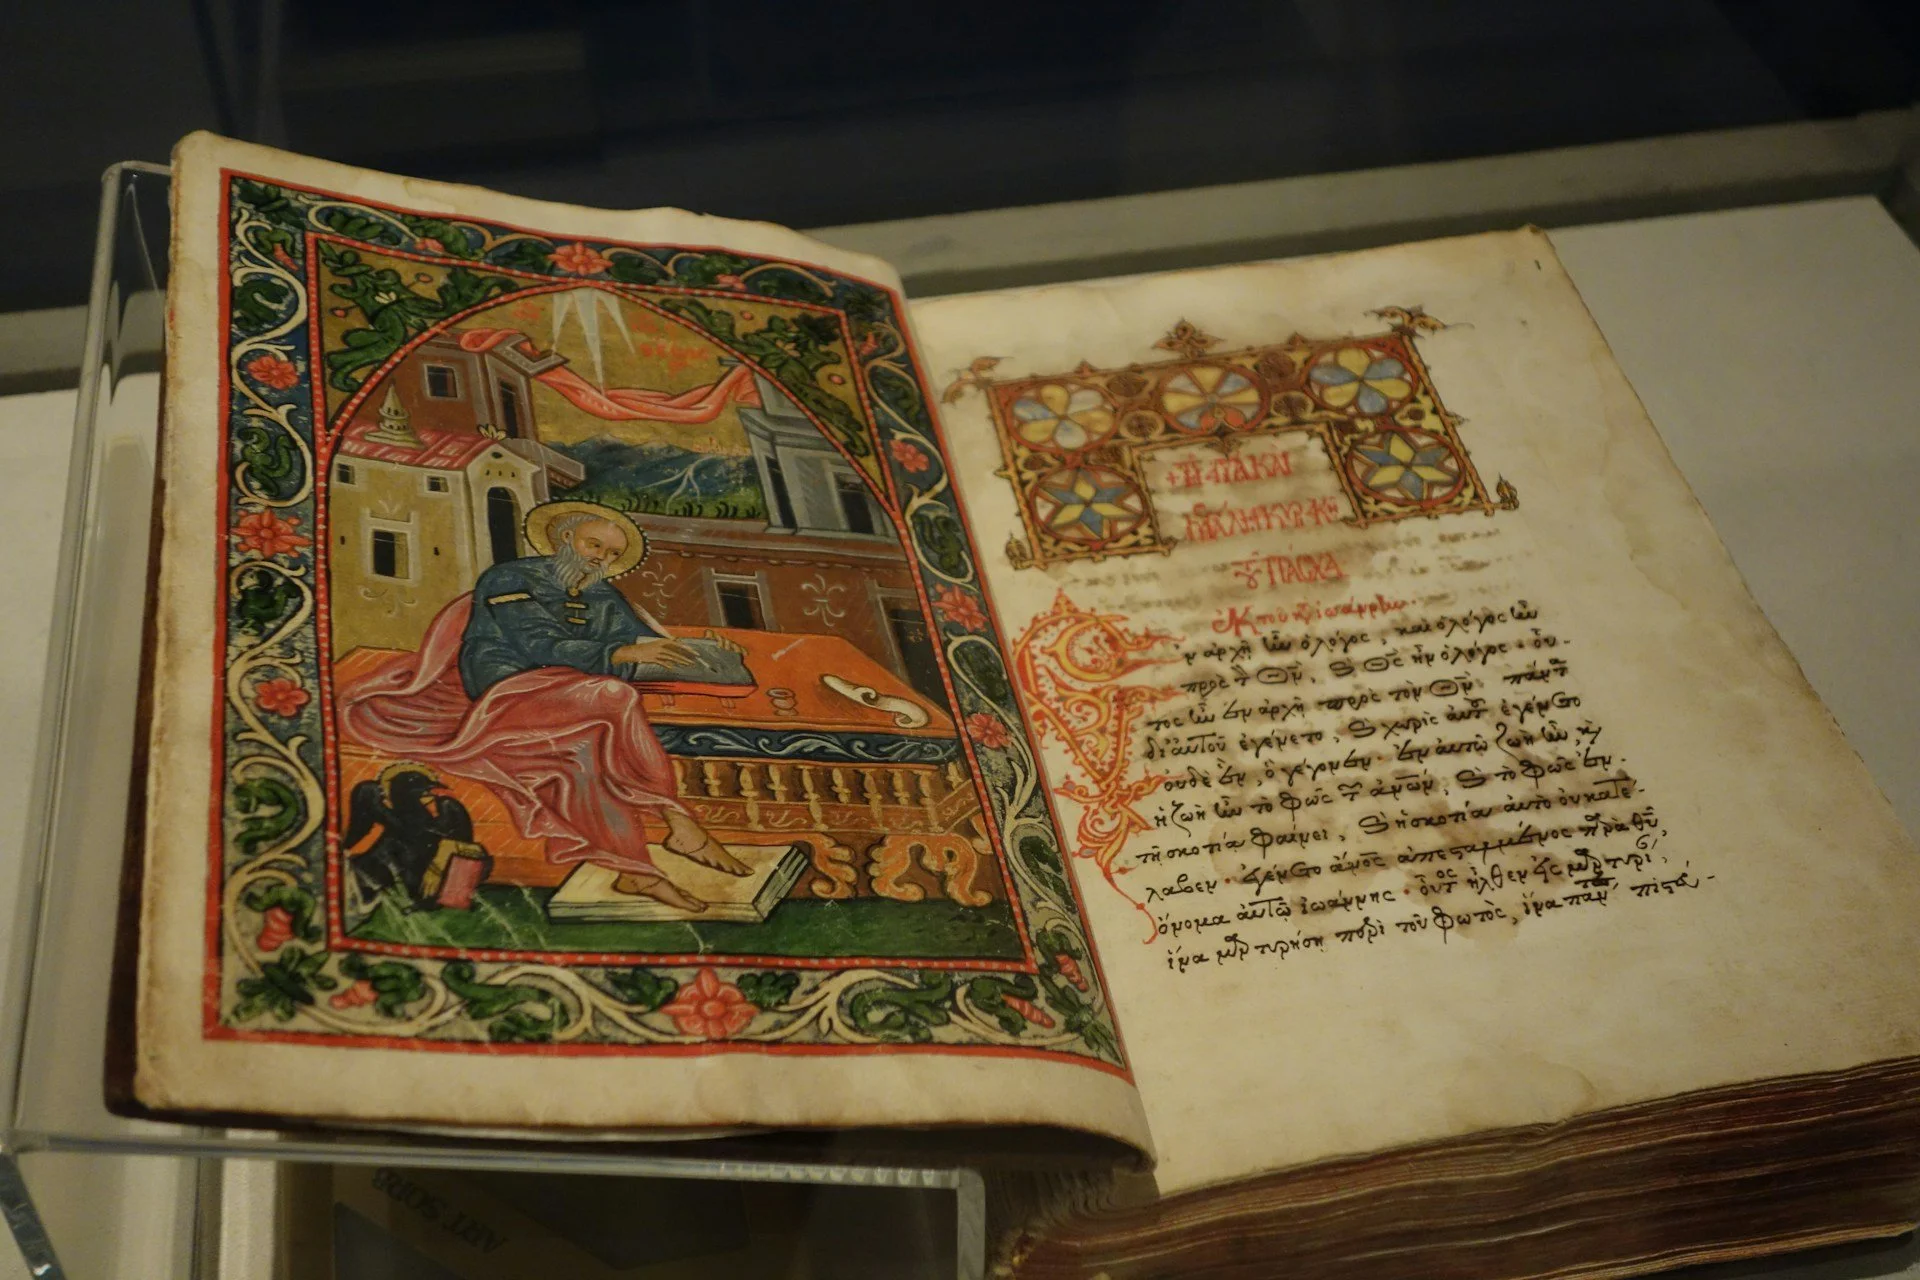 ΤΗ ΑΓΙΑ ΚΑΙ
ΜΕΓΑΛΗ ΚΥΡΙΑΚΗ
τοῦ ΠΑΣΧΑ
ἐκ τοῦ κατὰ ἰωάννην
Ἐν ἀρχῆ ἦν ὁ λόγος, καὶ ὁ λόγος ἦν
πρὸς τ θν, ϗ θς ἦν ὁ λόγος· οὗ-
τος ἦν ἐν ἀρχῆ πρὸς τὸν θν· πάντ
δι' αὐτοῦ ἐγένετο, ϗ χωρὶς αὐτ ἐγένετο
οὐδὲ ἕν, ὃ γέγονεν· ἐν αὐτῶ ζωὴ ἦν, ϗ
ἡ ζωὴ ἦν τὸ φῶς τ ἀνων, ϗ τὸ φῶς ἐν
τῆ σκοτία φαίνει, ϗ ἡ σκοτία αὐτὸ οὐ κατέ-
λαβεν· ἐγένετο ἄνος ἀπεσταλμένος παρὰ θυ,
ὄνομα αὐτῶ ἰωάννης· οὗτος ἦλθεν εἰς μαρτυρί,
ἵνα μαρτυρήση περὶ τοῦ φωτὸς, ἵνα πάν πιστεύ-
ART SOFIA